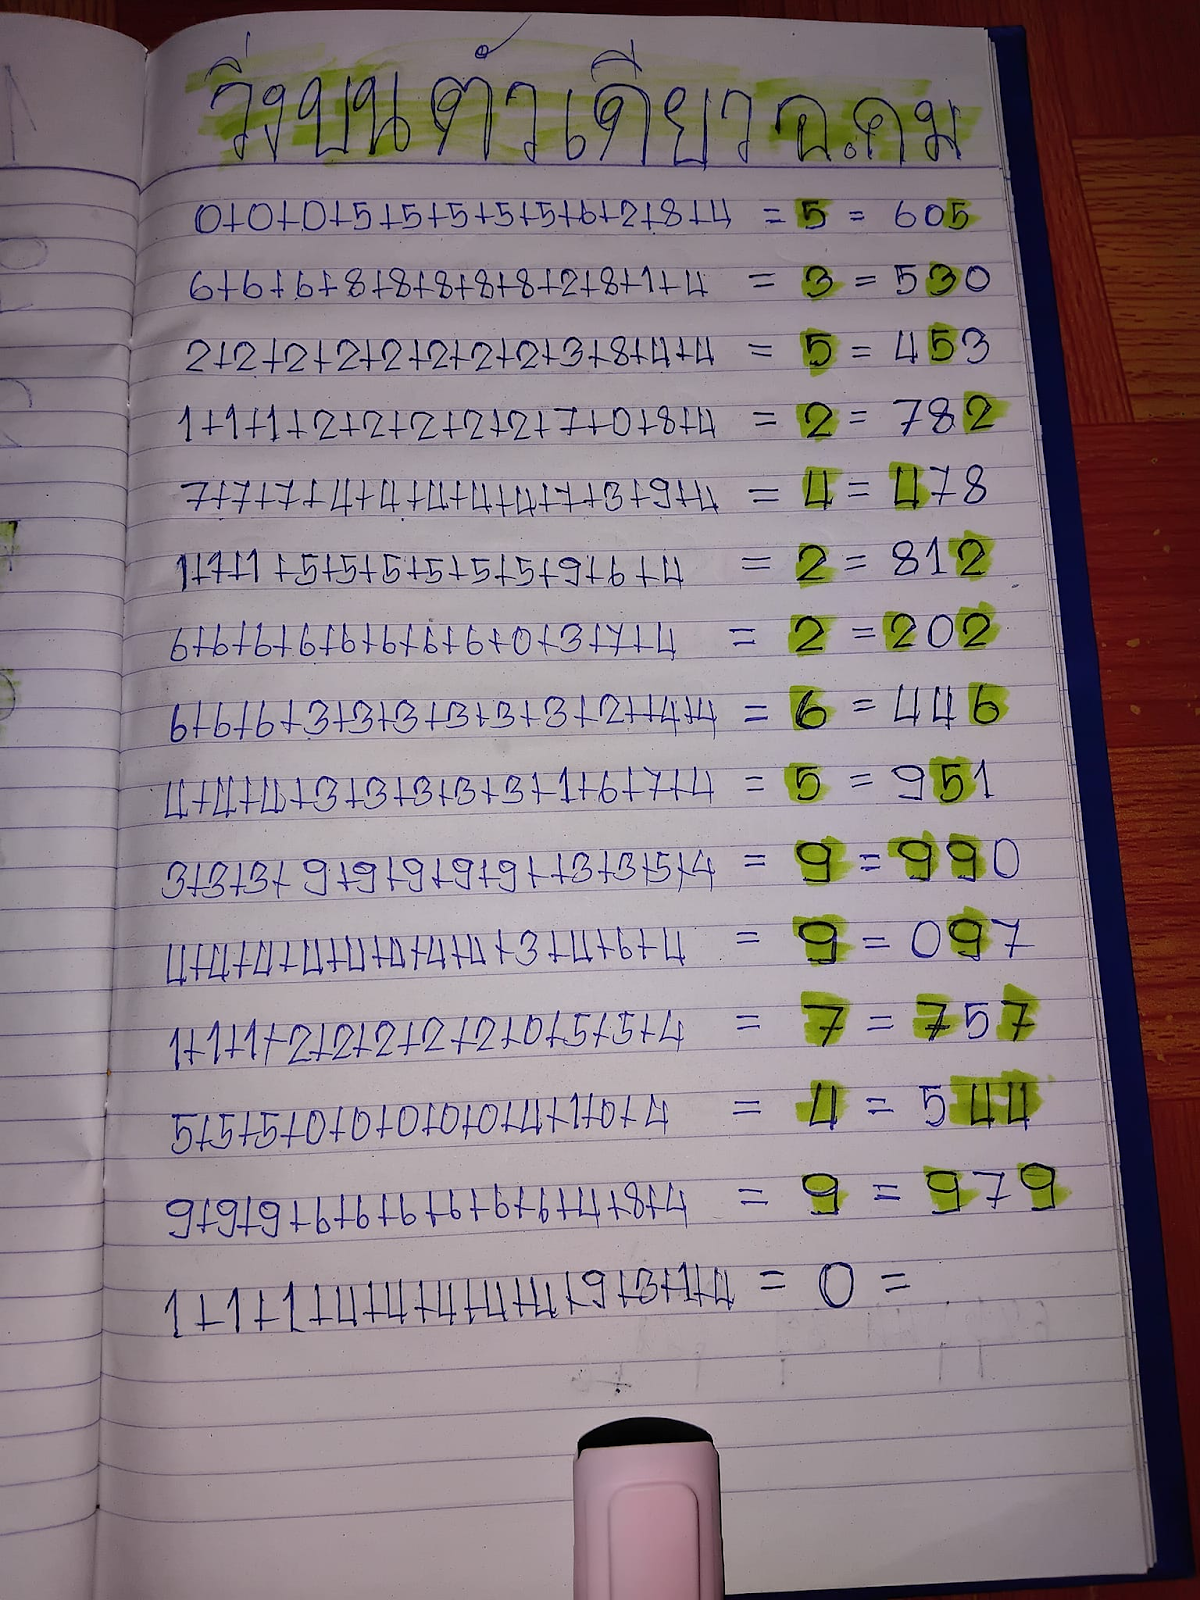 วิ่งบนตัวเดียว อ.คม
0+0+0+5+5+5+5+5+6+2+8+4 = 5 = 605
6+6+6+8+8+8+8+8+2+8+1+4 = 3 = 530
2+2+2+2+2+2+2+2+3+8+4+4 = 5 = 453
1+1+1+2+2+2+2+2+7+0+8+4 = 2 = 782
7+7+7+4+4+4+4+4+7+3+9+4 = 4 = 478
1+1+1+5+5+5+5+5+5+9+6+4 = 2 = 812
6+6+6+6+6+6+6+6+0+3+7+4 = 2 = 202
6+6+6+3+3+3+3+3+3+2+4+4 = 6 = 446
4+4+4+3+3+3+3+3+1+6+7+4 = 5 = 951
3+3+3+9+9+9+9+9+3+3+5+4 = 9 = 990
4+4+4+4+4+4+4+4+3+4+6+4 = 9 = 097
1+1+1+2+2+2+2+2+0+5+5+4 = 7 = 757
5+5+5+0+0+0+0+0+4+1+0+4 = 4 = 544
9+9+9+6+6+6+6+6+6+4+8+4 = 9 = 979
1+1+1+4+4+4+4+4+9+3+1+4 = 0 =